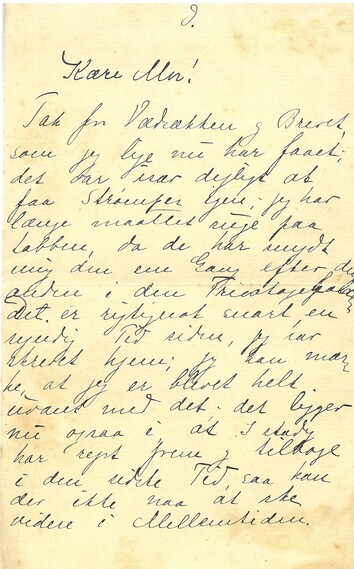 9.
Kære Mor!
Tak for Vadsækken og Brevet,
som jeg lige nu har faaet;
det var især dejligt at
faa Strømper igen; jeg har
længe maattet suge paa
Labben, da de har snydt
mig den ene Gang efter den
anden i den Tricotagefabrik
det er rigtignok snart en
syndig Tid siden, jeg har
skrevet hjem; jeg kan mær-
ke, at jeg er blevet helt
uvant med det; det ligger
nu ogsaa i, at I stadig
har rejst frem og tilbage
i den sidste Tid, saa kan
der ikke naa at ske
videre i Mellemtiden.